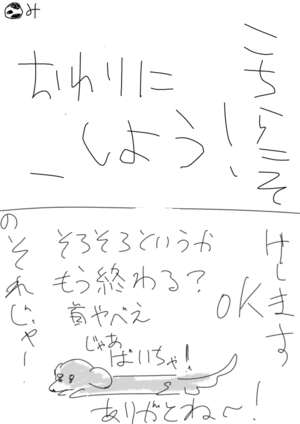 み
こちらにて
おわりに
しよう!
けします
OK
そろそろというか
もう終わる?
首やべえ
じゃあ
ばいちゃ!
ありがとね〜!
のそれじゃー!